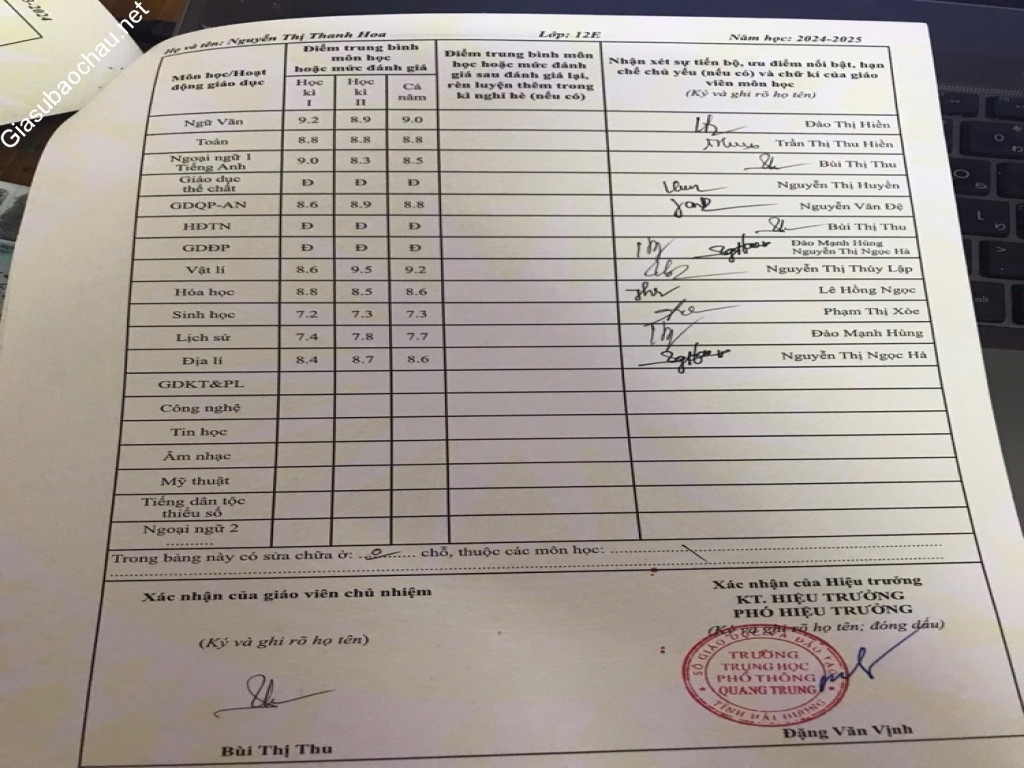 Giasubaochau.net
Họ và tên: Nguyễn Thị Thanh Hoa Lớp: 12E Năm học: 2024-2025
Môn học/Hoạt động giáo dục
Điểm trung bình môn học hoặc mức đánh giá
Học kì I
Học kì II
Cả năm
Điểm trung bình môn học hoặc mức đánh giá sau đánh giá lại, rèn luyện thêm trong kì nghỉ hè (nếu có)
Nhận xét sự tiến bộ, ưu điểm nổi bật, hạn chế chủ yếu (nếu có) và chữ kí của giáo viên môn học
(Ký và ghi rõ họ tên)
Ngữ Văn 9.2 8.9 9.0 Đào Thị Hiền
Toán 8.8 8.8 8.8 Trần Thị Thu Hiền
Ngoại ngữ 1
Tiếng Anh 9.0 8.3 8.5 Bùi Thị Thu
Giáo dục
thể chất Đ Đ Đ Nguyễn Thị Huyền
GDQP-AN 8.6 8.9 8.8 Nguyễn Văn Đệ
HĐTN Đ Đ Đ Bùi Thị Thu
GDĐP Đ Đ Đ Đào Mạnh Hùng
Nguyễn Thị Ngọc Hà
Vật lí 8.6 9.5 9.2 Nguyễn Thị Thúy Lập
Hóa học 8.8 8.5 8.6 Lê Hồng Ngọc
Sinh học 7.2 7.3 7.3 Phạm Thị Xòe
Lịch sử 7.4 7.8 7.7 Đào Mạnh Hùng
Địa lí 8.4 8.7 8.6 Nguyễn Thị Ngọc Hà
GDKT&PL
Công nghệ
Tin học
Âm nhạc
Mỹ thuật
Tiếng dân tộc
thiểu số
Ngoại ngữ 2
..........
Trong bảng này có sửa chữa ở: ...0..... chỗ, thuộc các môn học: ..........
Xác nhận của giáo viên chủ nhiệm
(Ký và ghi rõ họ tên)
Bùi Thị Thu
Xác nhận của Hiệu trưởng
KT. HIỆU TRƯỞNG
PHÓ HIỆU TRƯỞNG
(Ký và ghi rõ họ tên; đóng dấu)
SỞ GIÁO DỤC VÀ ĐÀO TẠO
TRƯỜNG
TRUNG HỌC
PHỔ THÔNG
QUANG TRUNG
TỈNH HẢI DƯƠNG
Đặng Văn Vịnh